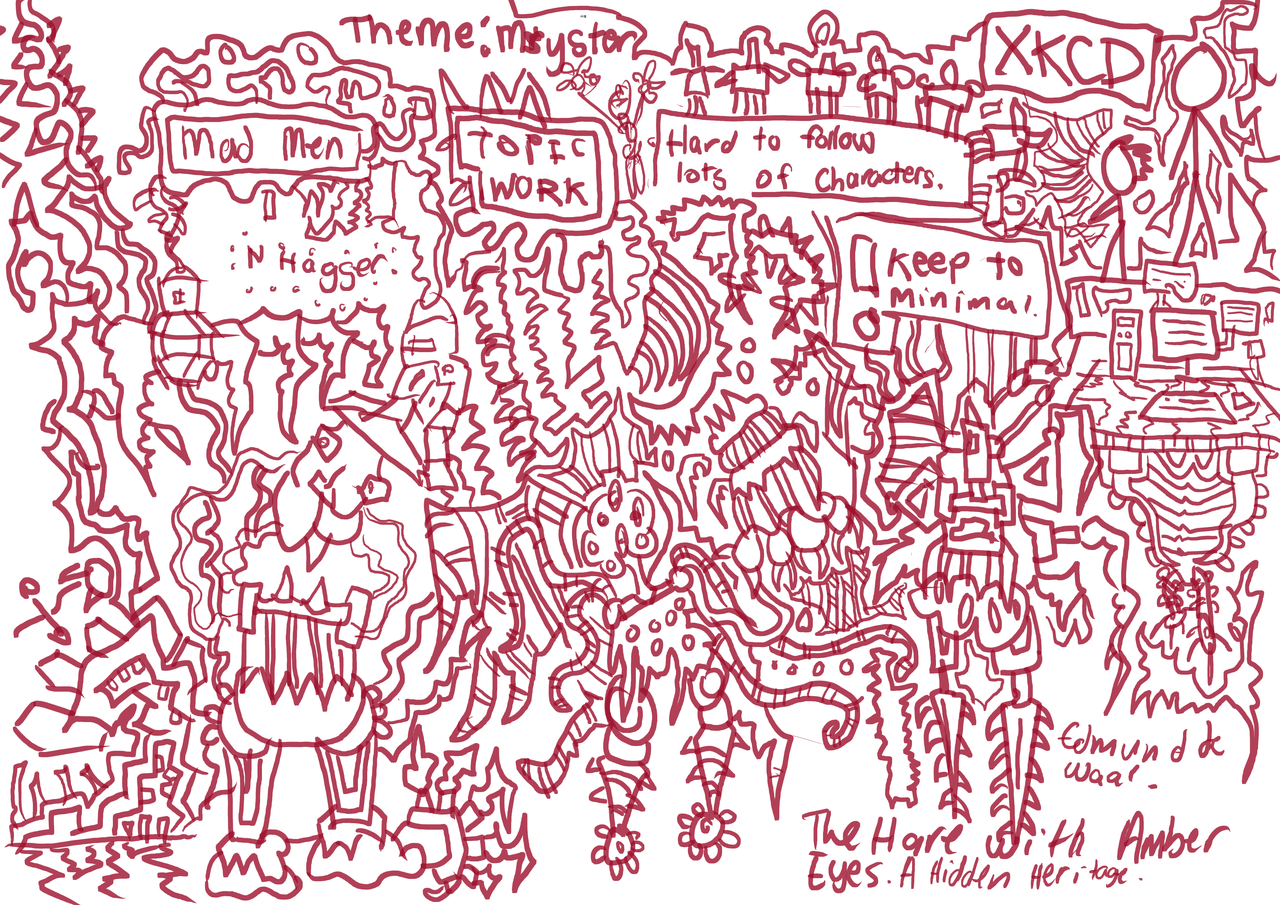 Theme: Mystery
XKCD
Mad Men
TOPIC
WORK
Hard to follow
lots of Characters.
N Hågger
! Keep to
Minimal.
Edmund de
Waal.
The Hare with Amber
Eyes. A Hidden Heritage.